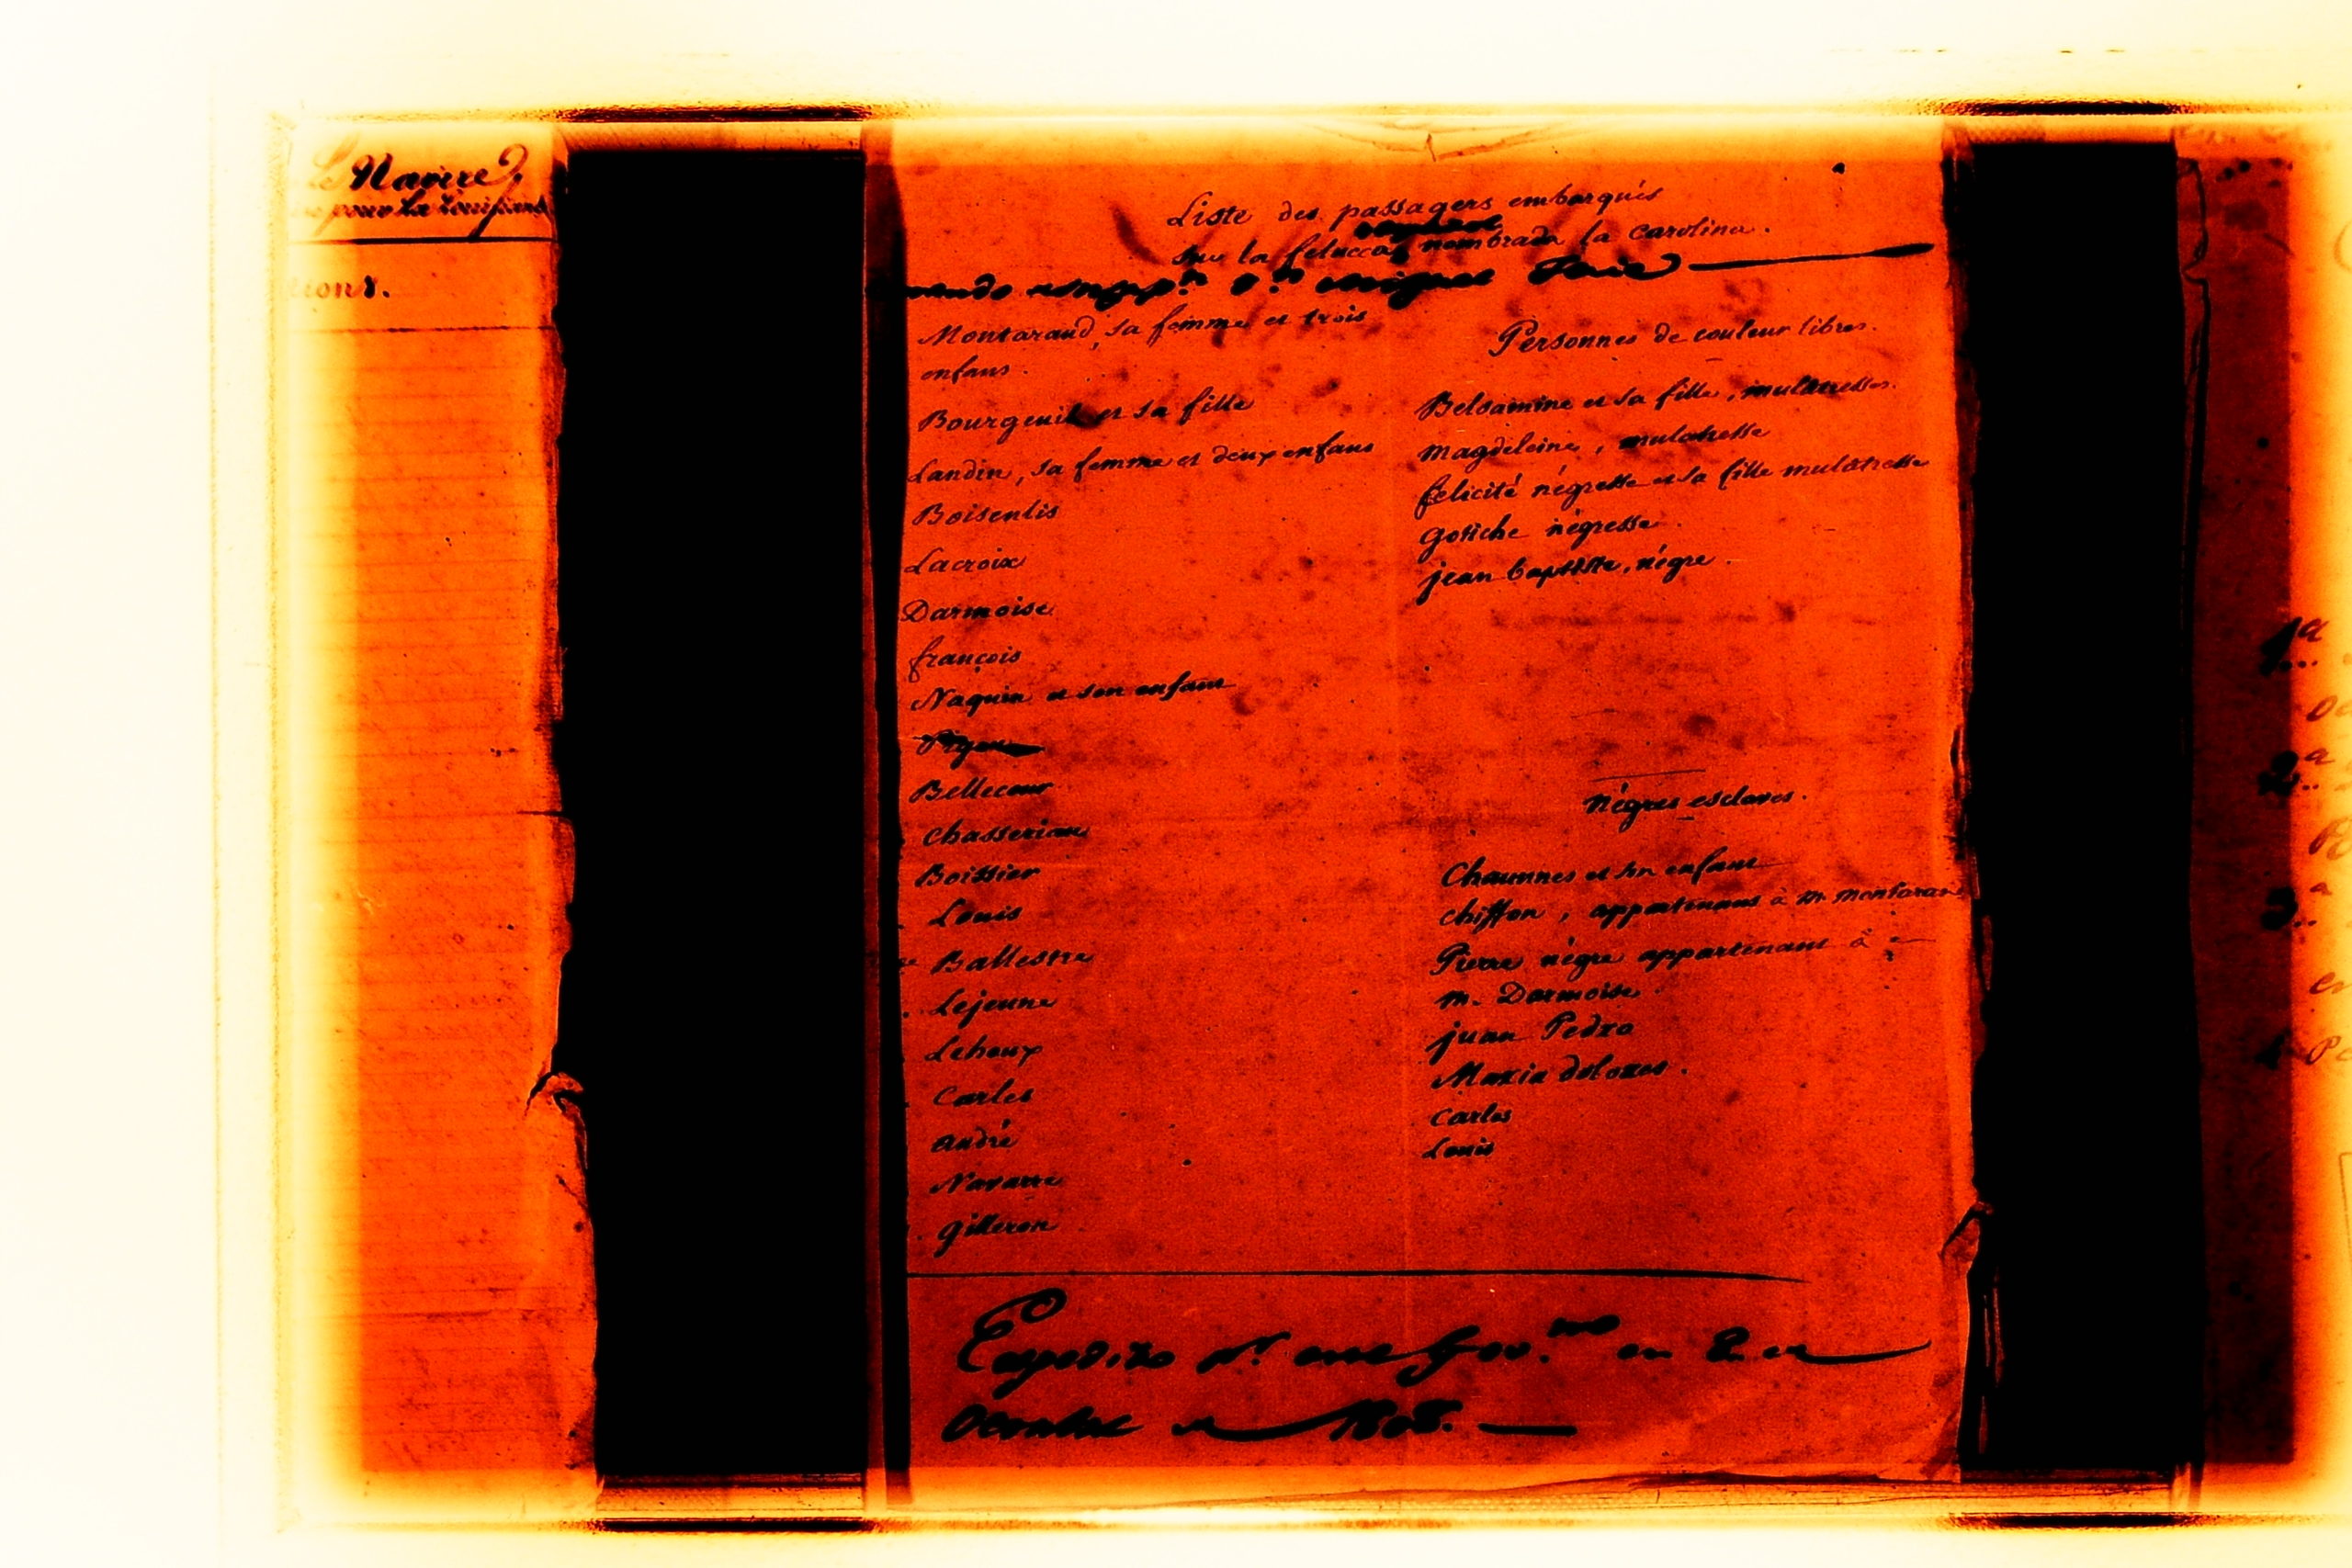 Le Navire
pour la Louisiane
tions.
Liste des passagers embarqués
sur la felucca nombrada la Carolina.
Miguel
Montarand, sa femme et trois
enfans.
Bourgeuil et sa fille
Landin, sa femme et deux enfans
Boisenlis
Lacroix
Darmoise
françois
Naquin et son enfant
Bellecour
Chasseriau
Boissier
Louis
Ballestre
Lejeune
Lehoux
Carles
André
Navarre
Gilleron
Personnes de couleur libres.
Belsamine et sa fille, mulatresses.
Magdeleine, mulatresse
felicité négresse et sa fille mulatresse
Gotiche négresse.
jean baptiste, négre.
négres esclaves.
Chaumnes et son enfant
chiffon, appartenans à m. montaran
Pierre négre appartenant à
m. Darmoise.
juan Pedro
Maria dolores.
Carlos
Louis
Expedito pr. este Gov.no en 2 de
Octubre de 1808.
1a
2a
3a